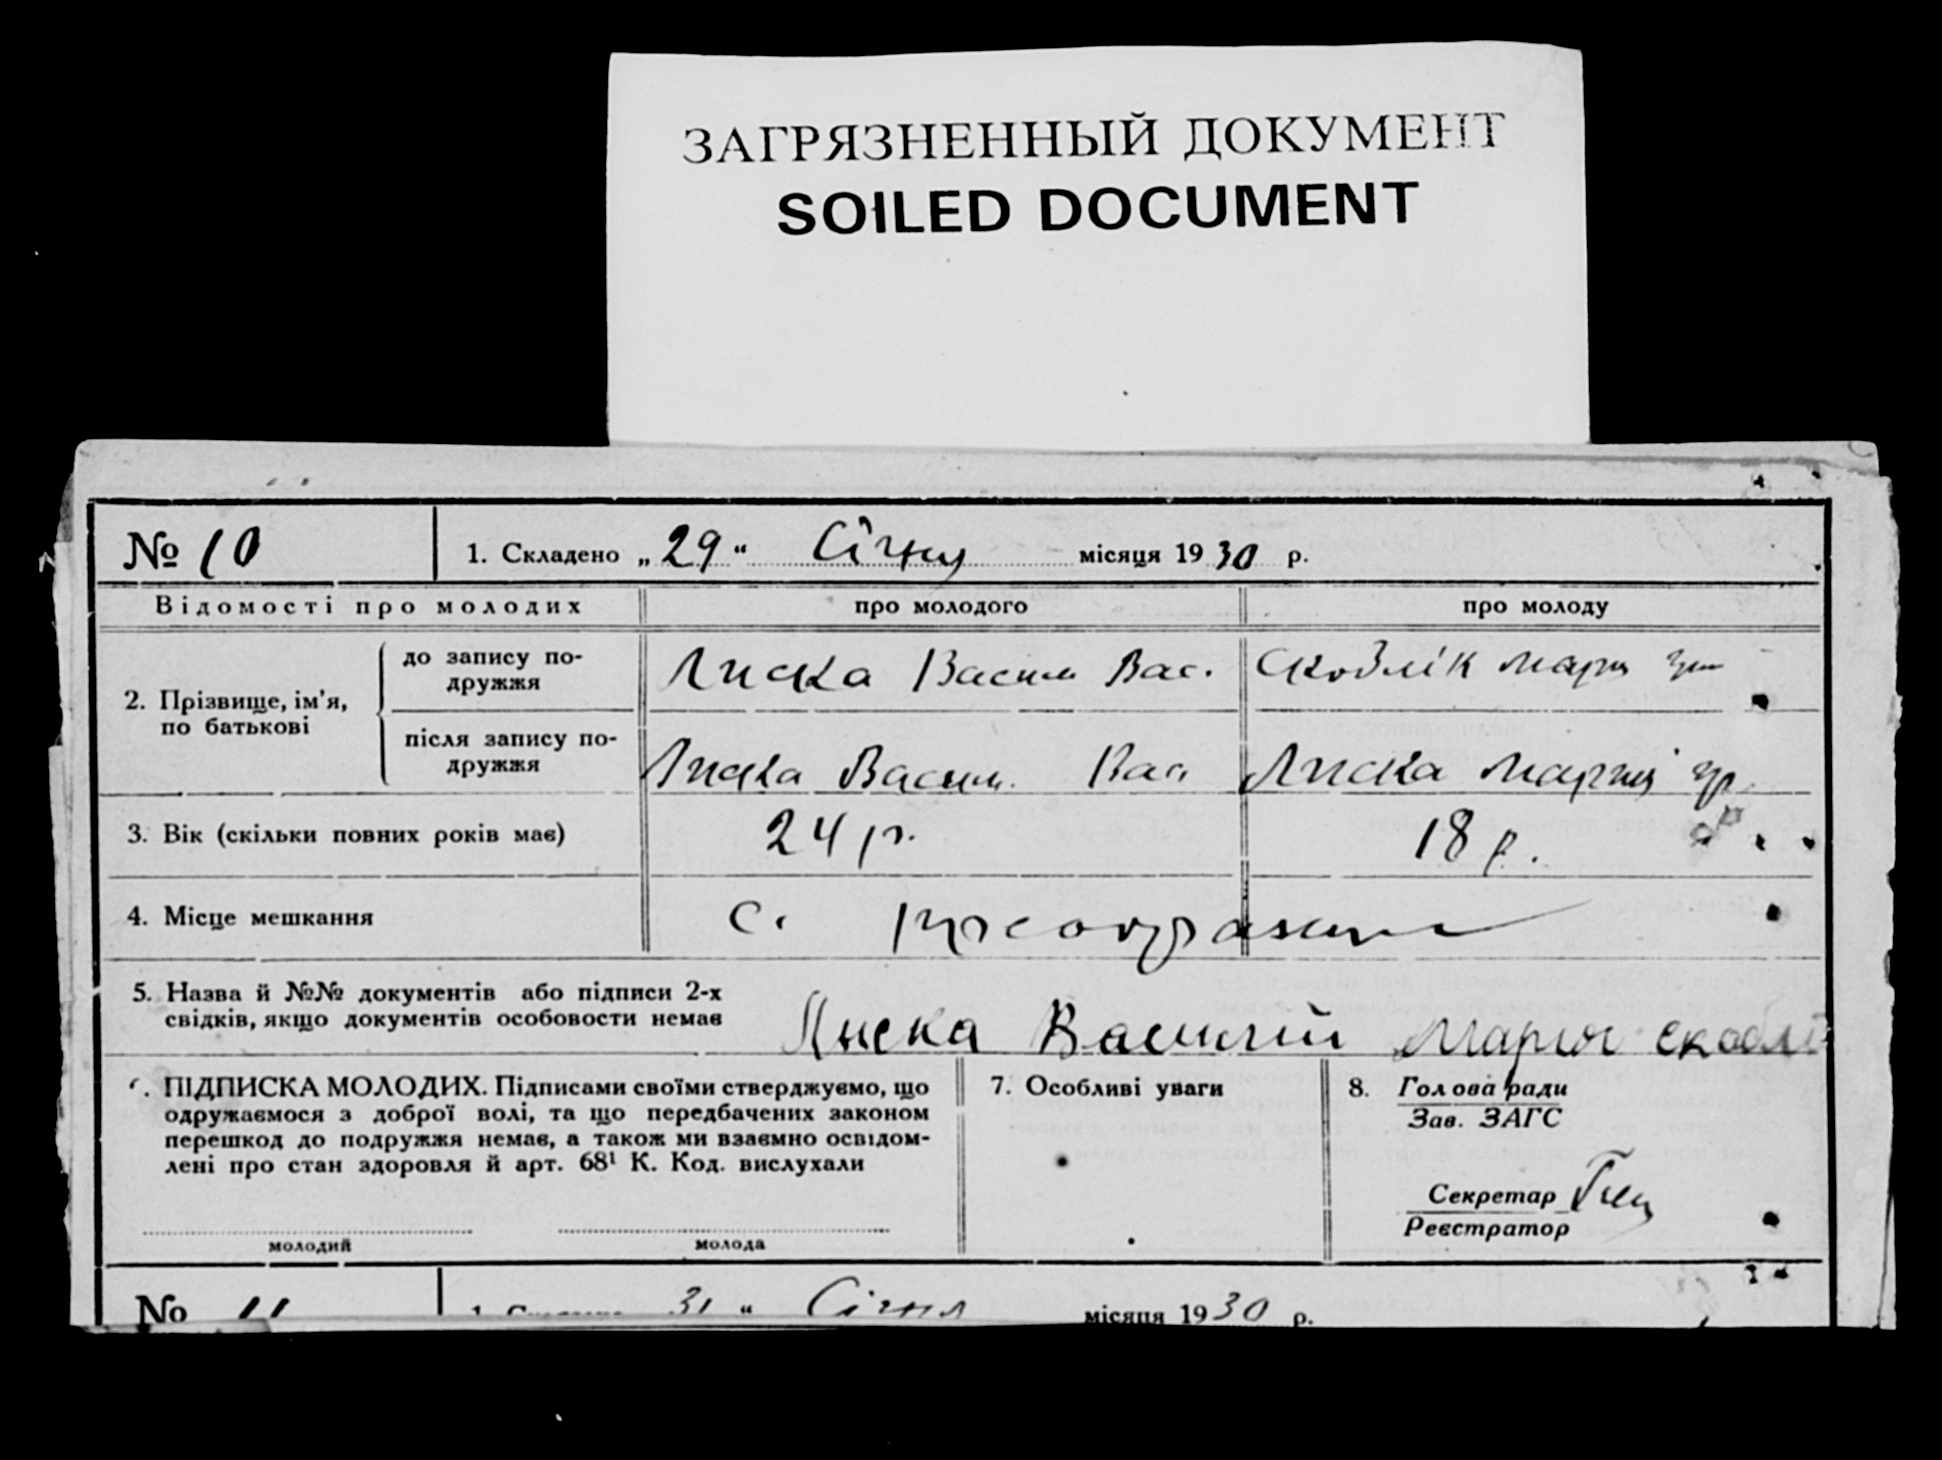 ЗАГРЯЗНЕННЫЙ ДОКУМЕНТ
SOILED DOCUMENT
№ 10 1. Складено „29“ Січня місяця 1930 р.
Відомості про молодих про молодого про молоду
2. Прізвище, ім’я, по батькові
до запису по-
дружжя
Лиска Васил Вас. Скоблік
після запису по-
дружжя
Лиска Васил. Вас. Лиска
3. Вік (скільки повних років має) 24 р. 18 р.
4. Місце мешкання с.
5. Назва й №№ документів або підписи 2-х
свідків, якщо документів особовости немає
Лиска Василий Мария
ПІДПИСКА МОЛОДИХ. Підписами своїми стверджуємо, що
одружаємося з доброї волі, та що передбачених законом
перешкод до подружжя немає, а також ми взаємно освідом-
лені про стан здоровля й арт. 68¹ К. Код. вислухали
молодий молода
7. Особливі уваги
8. Голова ради
Зав. ЗАГС
Секретар
Реєстратор
№ 11 31 “ Січня місяця 1930 р.